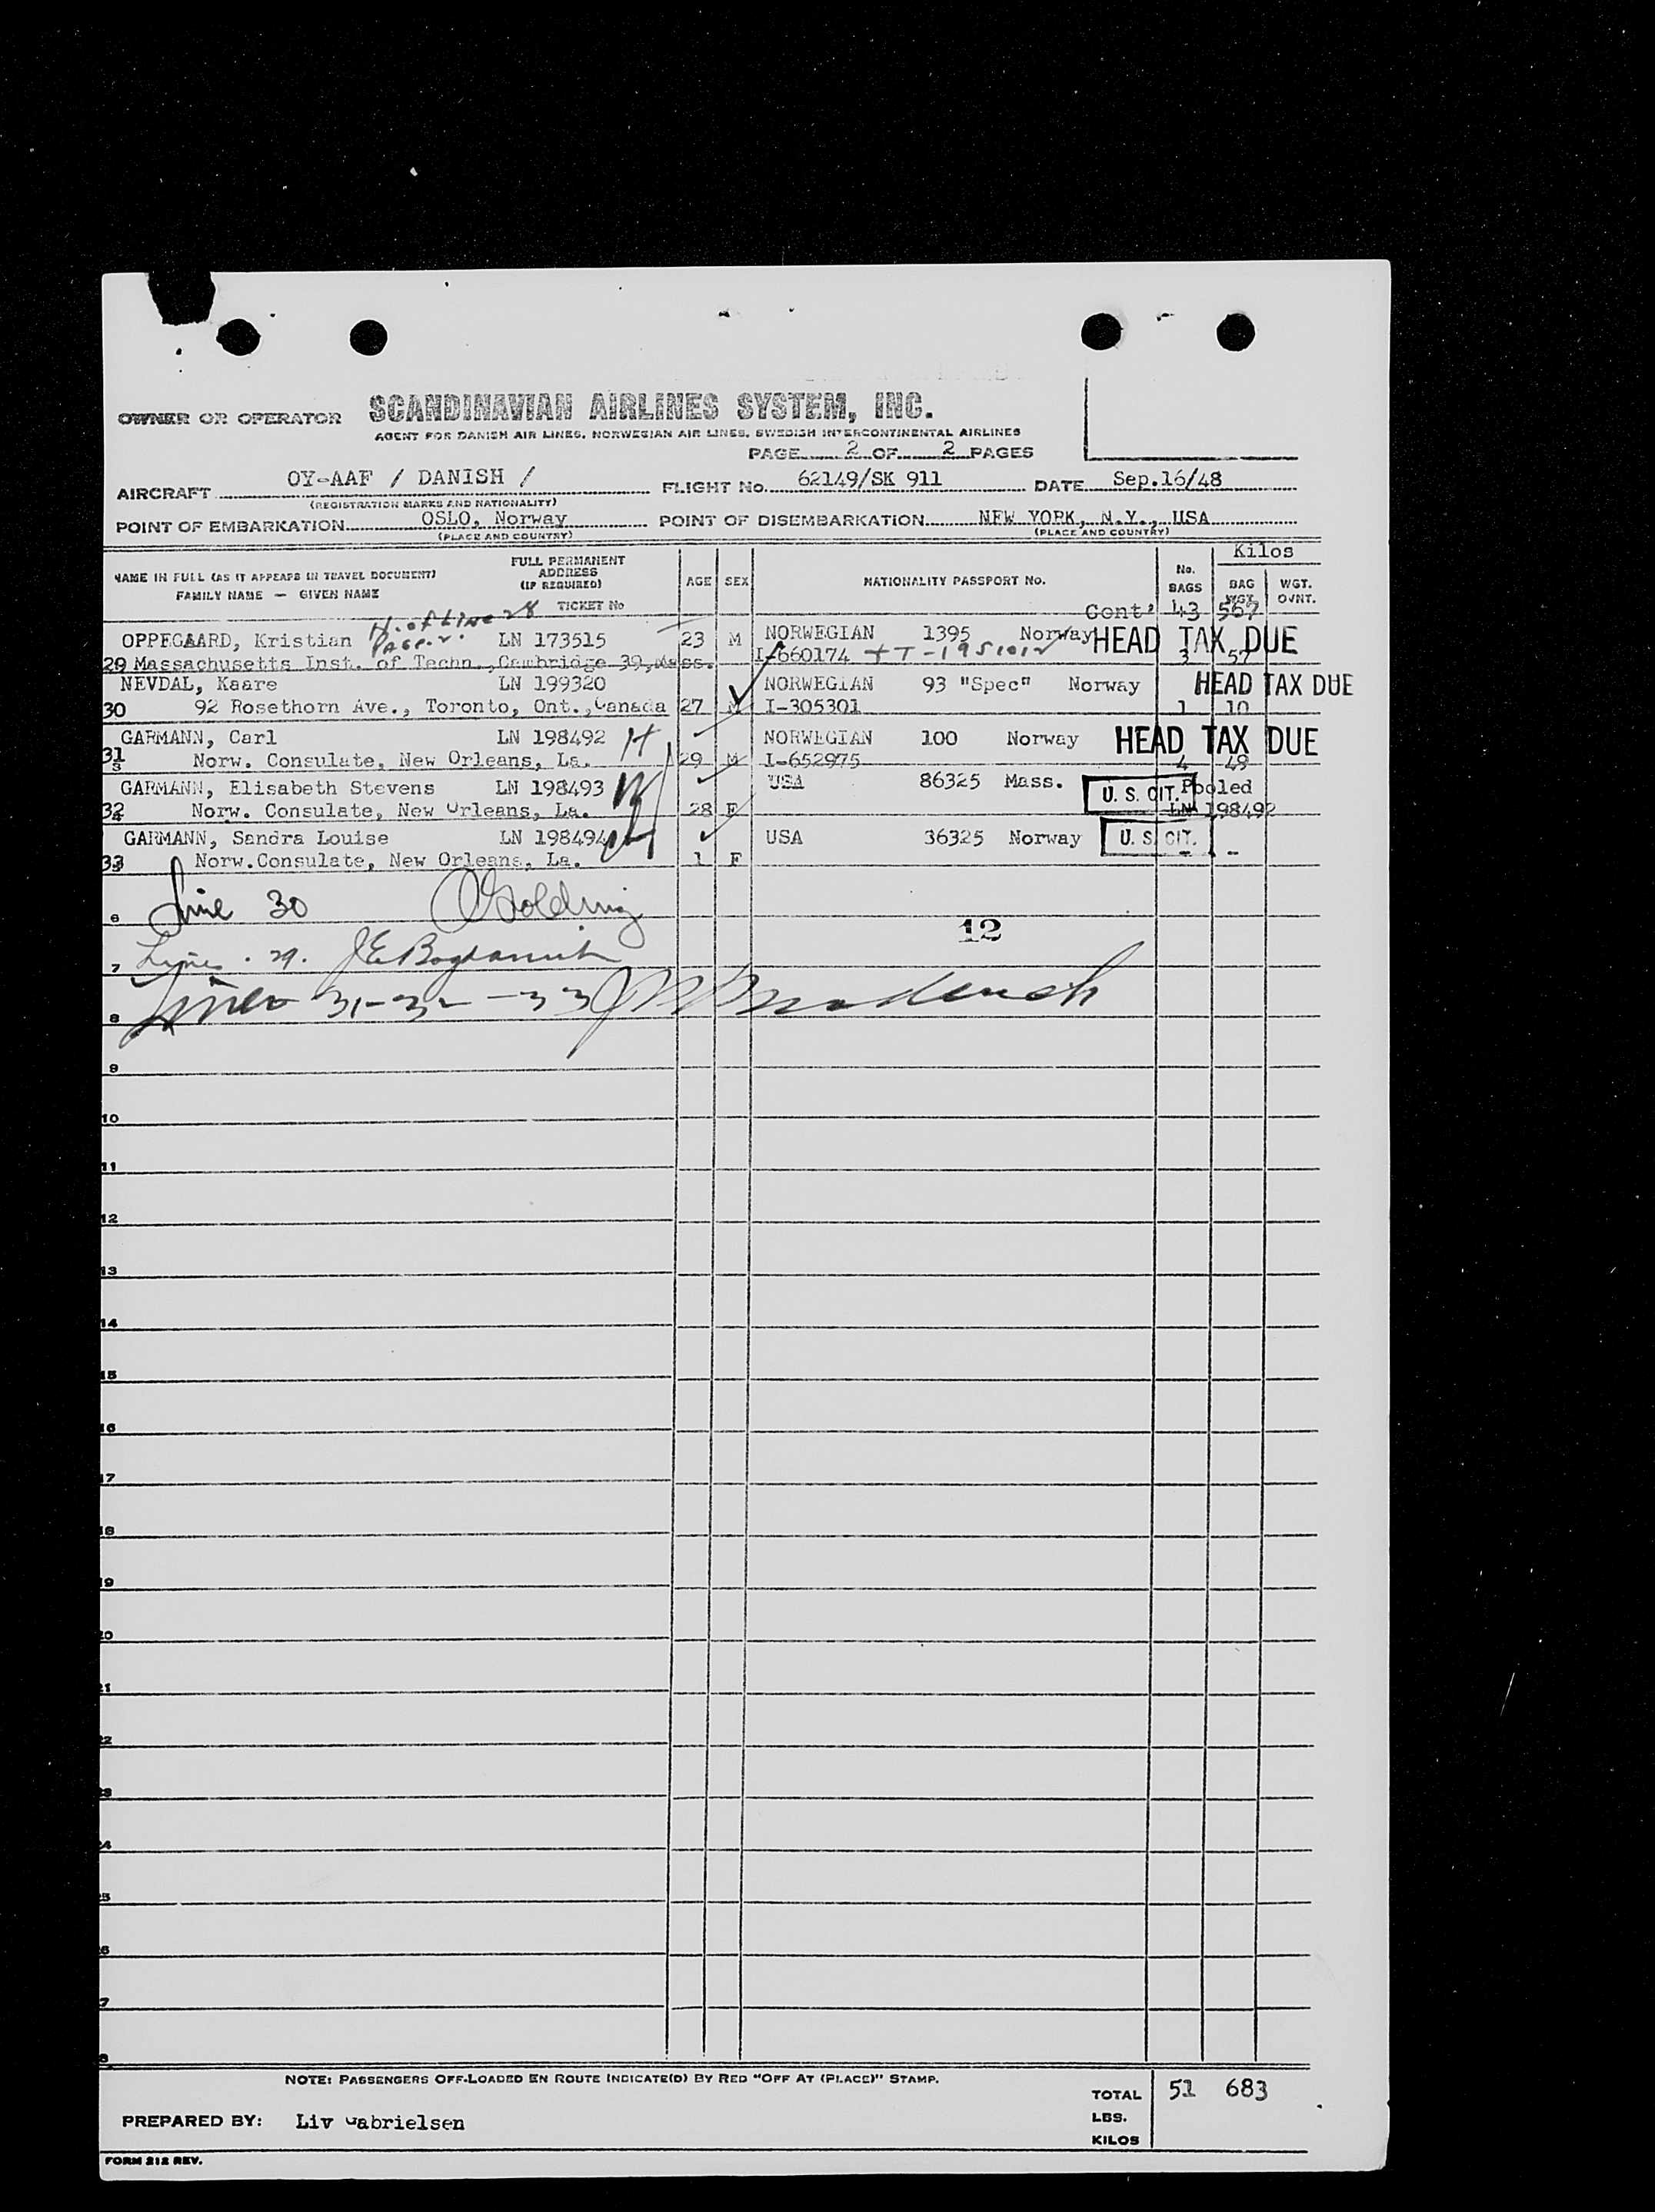 OWNER OR OPERATOR SCANDINAVIAN AIRLINES SYSTEM, INC.
AGENT FOR DANISH AIR LINES, NORWEGIAN AIR LINES, SWEDISH INTERCONTINENTAL AIRLINES
PAGE 2 OF 2 PAGES
AIRCRAFT OY-AAF / DANISH / FLIGHT No. 62149/SK 911 DATE Sep.16/48
(REGISTRATION MARKS AND NATIONALITY)
POINT OF EMBARKATION OSLO, Norway POINT OF DISEMBARKATION NEW YORK, N.Y., USA
(PLACE AND COUNTRY) (PLACE AND COUNTRY)
NAME IN FULL (AS IT APPEARS IN TRAVEL DOCUMENT) FULL PERMANENT ADDRESS (IF REQUIRED) AGE SEX NATIONALITY PASSPORT No. No. BAGS Kilos BAG WGT. WGT. OVNT.
FAMILY NAME — GIVEN NAME TICKET No
H. of Line 28 Cont' 43 567
OPPEGAARD, Kristian Page. LN 173515 23 M NORWEGIAN 1395 Norway HEAD TAX DUE
29 Massachusetts Inst. of Techn., Cambridge 39, Mass. I-660174 + T-1951012 3 57
NEVDAL, Kaare LN 199320 NORWEGIAN 93 "Spec" Norway HEAD TAX DUE
30 92 Rosethorn Ave., Toronto, Ont., Canada 27 M I-305301 1 10
GARMANN, Carl LN 198492 H NORWEGIAN 100 Norway HEAD TAX DUE
31 Norw. Consulate, New Orleans, La. 29 M I-652975 4 49
GARMANN, Elisabeth Stevens LN 198493 W USA 86325 Mass. U. S. CIT. Pooled
32 Norw. Consulate, New Orleans, La. 28 F LN 198492
GARMANN, Sandra Louise LN 198494 ch USA 36325 Norway U. S. CIT.
33 Norw.Consulate, New Orleans, La. 1 F - -
6 Line 30 Golding
12
7 Line . 29.
8 Lines 31-32-33
9
10
11
12
13
14
15
16
17
18
19
20
21
22
23
24
25
26
27
28
NOTE: PASSENGERS OFF-LOADED EN ROUTE INDICATE(D) BY RED "OFF AT (PLACE)" STAMP.
TOTAL 51 683
LBS.
PREPARED BY: Liv Gabrielsen
KILOS
FORM 212 REV.